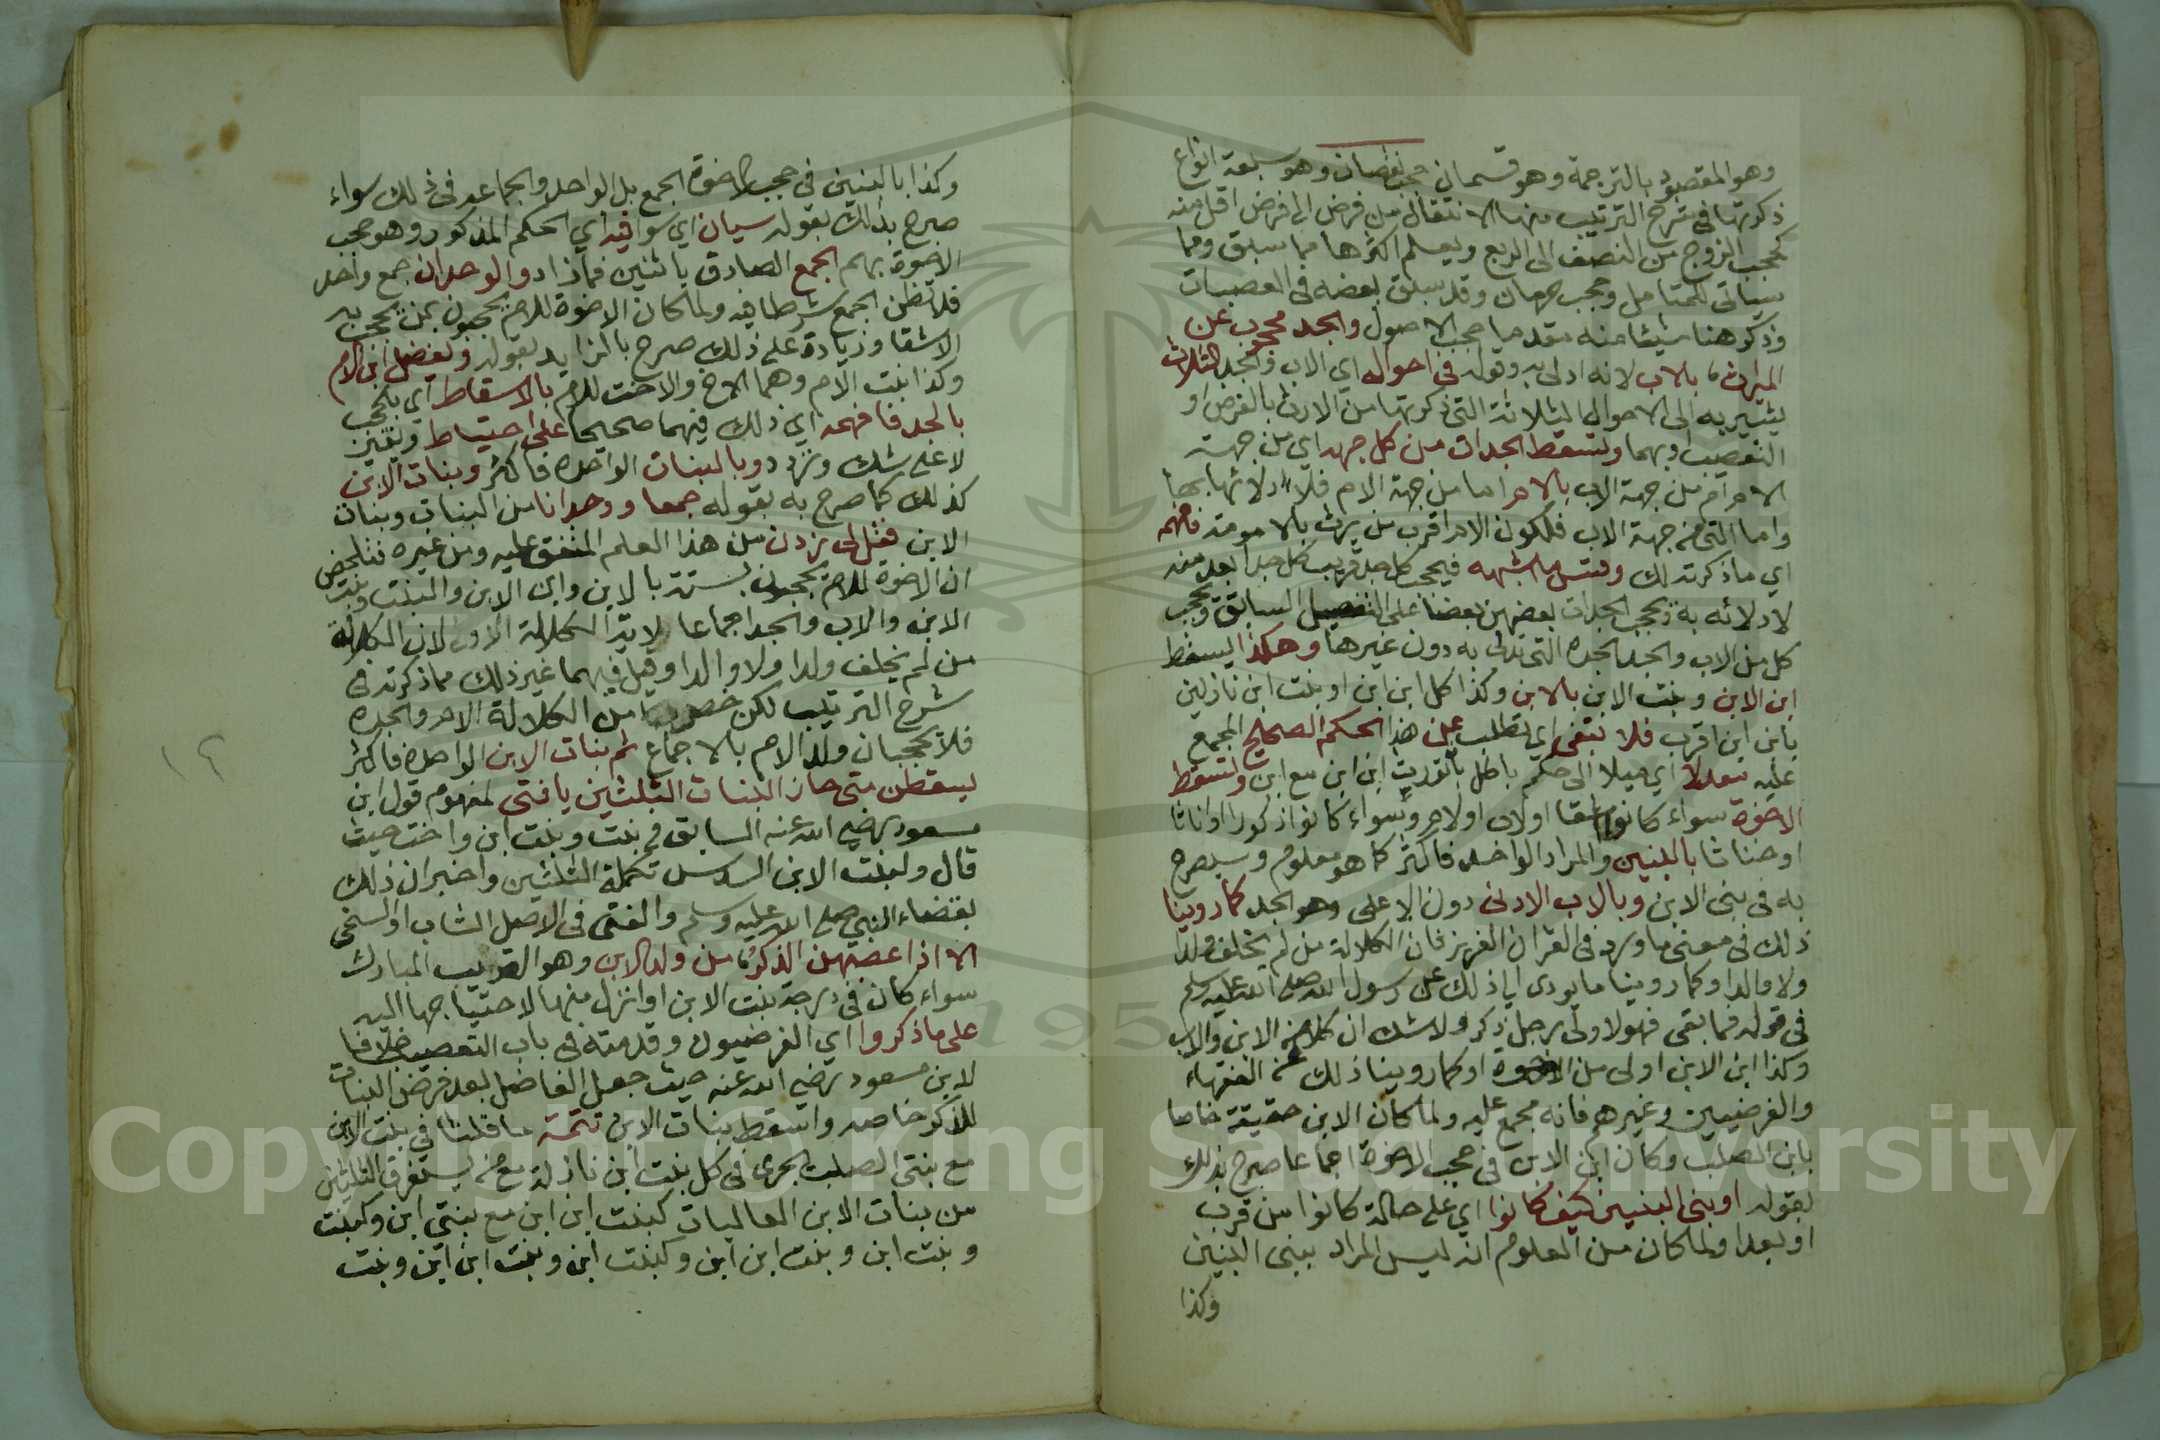 وهو المقصود بالترجمة وهو قسمان حجب نقصان وهو سبعة انواع
ذكرتها في شرح الترتيب منها الانتقال من فرض الى فرض اقل منه
كحجب الزوج من النصف الى الربع ويعلم اكثرها مما سبق ومما
سياتي للمتامل وحجب حرمان وقد سبق بعضه في العصبات
وذكر هنا شيئا منه مقدما حجب الاصول والجد محجوب عن
الميراث بالاب لانه ادلى به وقوله في احواله اي الاب والجد الثلاث
يشير به الى الاحوال الثلاثة التي ذكرتها من الارث بالفرض او
التعصيب او بهما وتسقط الجدات من كل جهه اي من جهة
الام او من جهة الاب بالام اما من جهة الام فلادلائها بها
واما التي من جهة الاب فلكون الام اقرب من يرث بالامومة فافهمه
اي ما ذكرته لك وقس ما اشبهه فيحجب كل جد قريب كل جد ابعد منه
لادلائه به وتحجب الجدات بعضهن بعضا على التفصيل السابق ويحجب
كل من الاب والجد الجدة التي تدلي به دون غيرها وهكذا يسقط
ابن الابن وبنت الابن بالابن وكذا كل ابن ابن او بنت ابن نازلين
بابن ابن اقرب فلا تبغي اي تطلب عن هذا الحكم الصحيح المجمع
عليه معدلا اي ميلا الى حكم باطل بتوريث ابن ابن مع ابن وتسقط
الاخوة سواء كانوا اشقا او لاب او لام وسواء كانوا ذكورا او اناثا
او خناثا بالبنين والمراد الواحد فاكثر كما هو معلوم وسيصرح
به في بني الابن وبالاب الادنى دون الاعلى وهو الجد كما روينا
ذلك في معنى ما ورد في القران العزيز فان الكلالة من لم يخلف ولدا
ولا والدا وكما روينا ما يودي الى ذلك عن رسول الله صلى الله عليه وسلم
في قوله فما بقي فهو لاولى رجل ذكر ولا شك ان كلا من الابن والاب
وكذا ابن الابن اولى من الاخوة او كما روينا ذلك عن الفقهاء
والفرضيين وغيرهم فانه مجمع عليه ولما كان الابن حقيقة خاصا
بابن الصلب وكان ابن الابن في حجب الاخوة اجماعا صرح بذلك
بقوله او ببني البنين كيف كانوا اي على حالة كانوا من قرب
او بعد ولما كان من المعلوم انه ليس المراد ببني البنين
وكذا
وكذا بالبنين في حجب الاخوة الجمع بل الواحد والجماعة في ذلك سواء
صرح بذلك بقوله سيان اي سوا فيه اي الحكم المذكور وهو حجب
الاخوة بهم الجمع الصادق باثنين فما زاد والوحدان جمع واحد
فلا تظن الجمع شرطا فيه ولما كان الاخوة للام يحجبون بمن يحجب به
الاشقا وزيادة على ذلك صرح بالزايد بقوله ويفضل ابن الام
وكذا بنت الام وهما الاخ والاخت للام بالاسقاط اي بالحجب
بالجد فافهمه اي ذلك فيهما صحيحا على احتياط ويقين
لا على شك ونزد وبالبنات الواحدة فاكثر وبنات الابن
كذلك كما صرح به بقوله جمعا ووحدانا من البنات وبنات
الابن فقل لي زدني من هذا العلم المتفق عليه ومن غيره فتلخص
ان الاخوة للام يحجبون بستة بالابن وابن الابن والبنت وبنت
الابن والاب والجد اجماعا لاية الكلالة الاولى لان الكلالة
من لم يخلف ولدا ولا والدا وقيل فيهما غير ذلك مما ذكرته في
شرح الترتيب لكن من الكلالة الام والجدة
فلا تحجبان ولد الام بالاجماع ثم بنات الابن الواحدة فاكثر
يسقطن متى حاز البنات الثلثين يا فتى لمفهوم قول ابن
مسعود رضي الله عنه السابق في بنت وبنت ابن واخت حيث
قال ولبنت الابن السدس تكملة الثلثين واخبر ان ذلك
بقضاء النبي صلى الله عليه وسلم والفتى في الاصل الشاب او السخي
الا اذا عصبهن الذكر من ولد الابن وهو القريب المبارك
سواء كان في درجة بنت الابن او انزل منها لاحتياجها اليه
على ما ذكروا اي الفرضيون وقدمته في باب التعصيب خلافا
لابن مسعود رضي الله عنه حيث جعل الفاضل بعد فرض البنات
للذكر خاصه واسقط بنات الابن تتمة ما قلنا في بنت الابن
مع بنتي الصلب يجري في كل بنت ابن نازلة مع من يستغرق الثلثين
من بنات الابن العاليات كبنت ابن ابن مع بنتي ابن وكبنت
وبنت ابن وبنت ابن ابن وكبنت ابن وبنت ابن ابن وبنت
١٢
Copyright © King Saud University
195